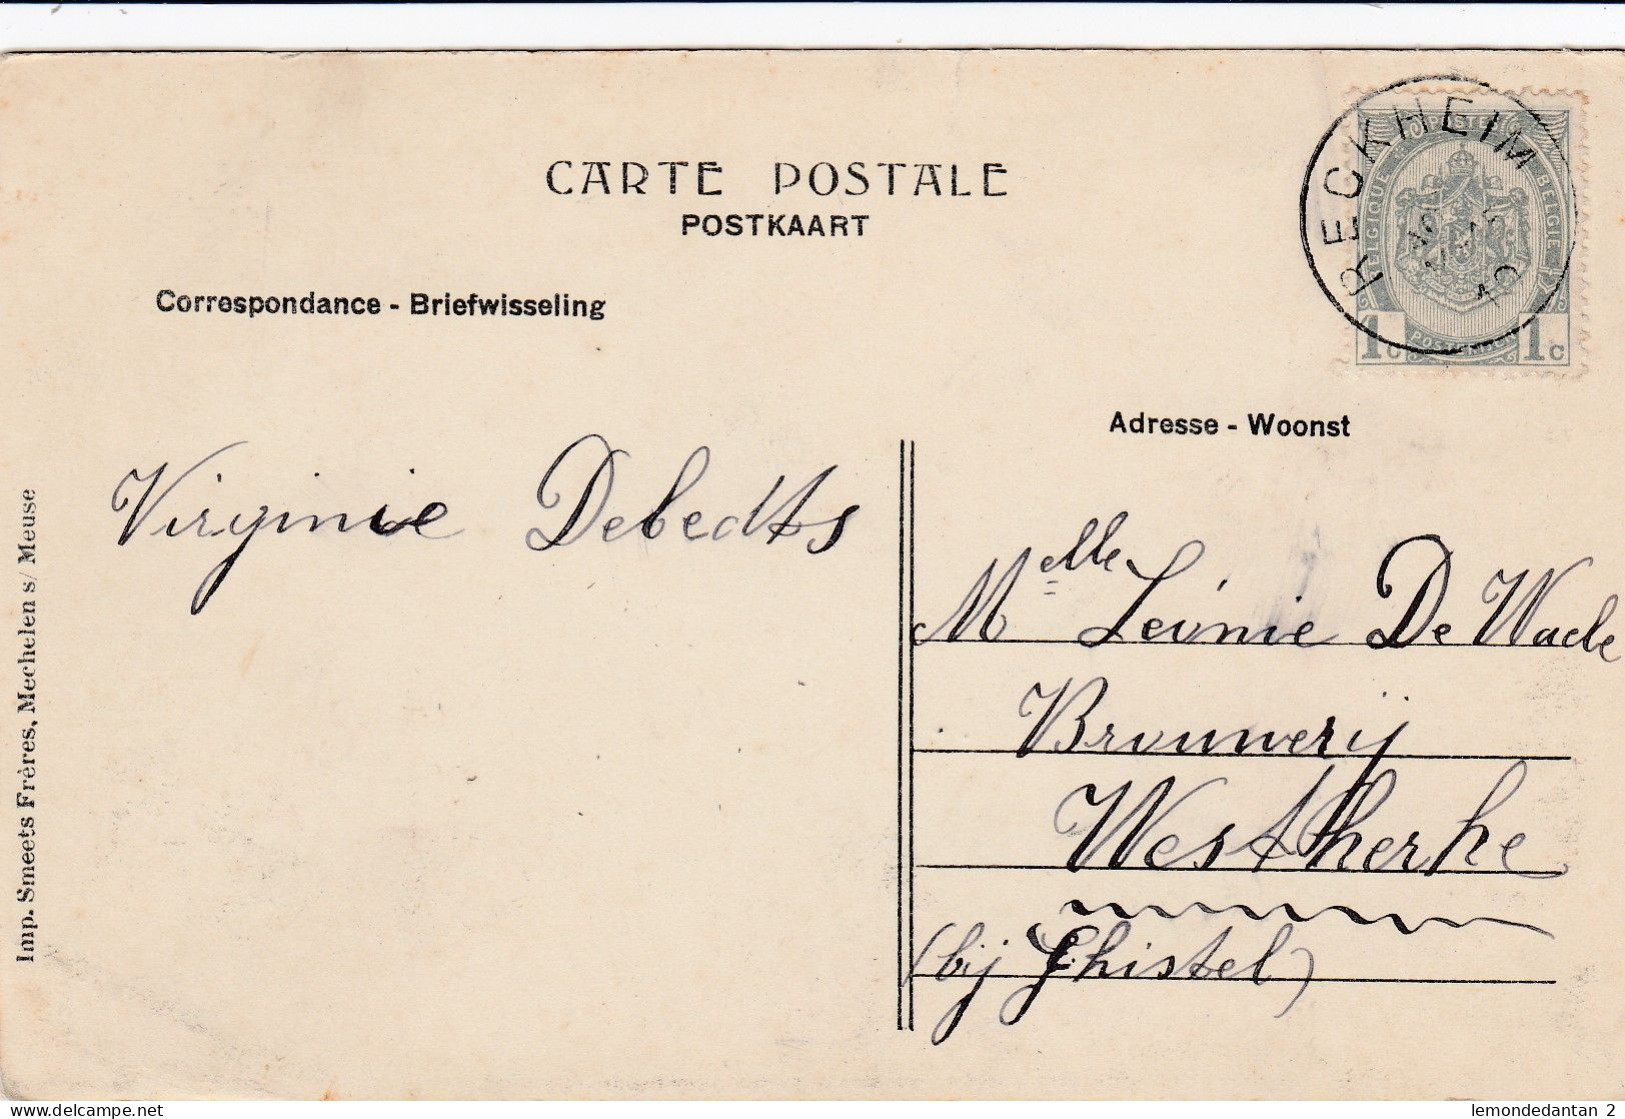 CARTE POSTALE
POSTKAART
Correspondance - Briefwisseling
RECKHEIM
10
POSTES
BELGIQUE BELGIE
1c 1c
Adresse - Woonst
Virginie Debedts
Melle Léonie De Waele
Brouwerij
Westkerke
(bij Ghistel)
Imp. Smeets Frères, Mechelen s/ Meuse
delcampe.net
lemondedantan_2